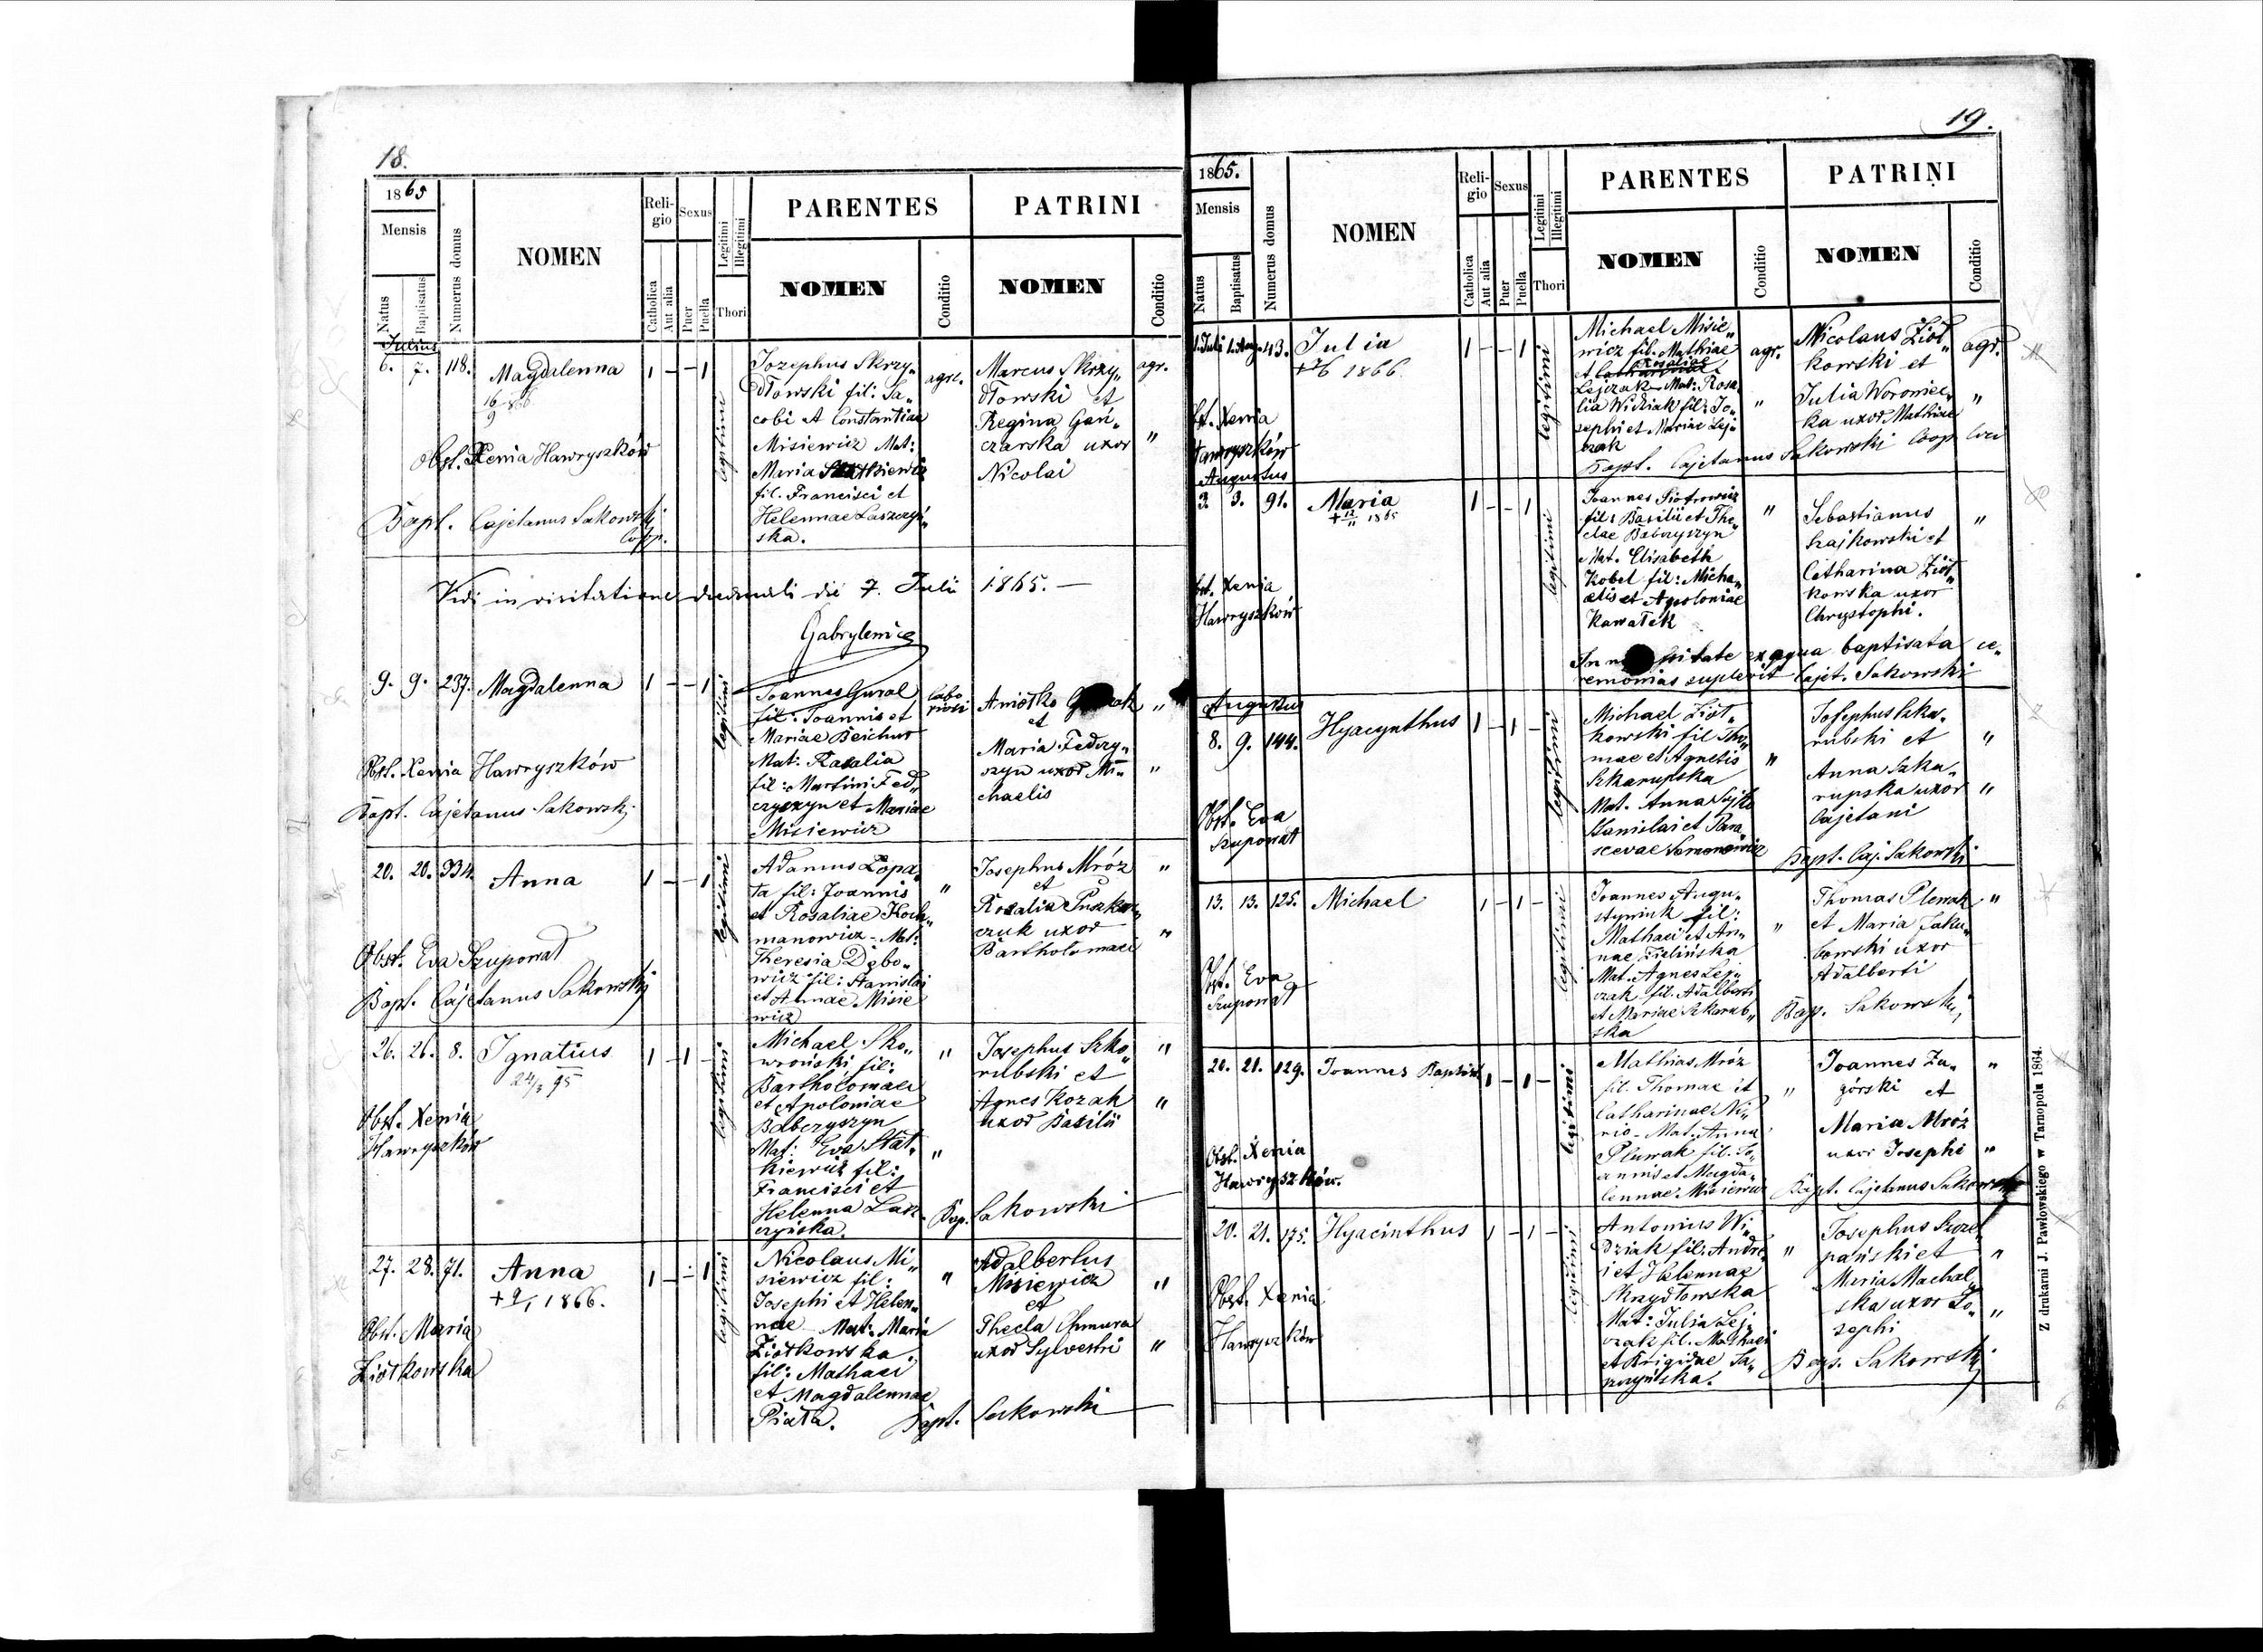 18.
1865
Mensis
Natus
Baptisatus
Numerus domus
NOMEN
Reli-
gio
Catholica
Aut alia
Sexus
Puer
Puella
Legitimi
Illegitimi
Thori
PARENTES
NOMEN
Conditio
PATRINI
NOMEN
Conditio
Julius
6. 7. 118. Magdalenna 1 - - 1
16/9 866
Obst. Xenia Hawryszków
Bapt. Cajetanus Sakowski
Coop.
legitimi
Jozephus Skrzy„
dłowski fil: Ja„
cobi et Constantiae
Misiewicz Mat:
Maria
fil. Francisci et
Helennae Laszczyń„
ska.
agr.
Marcus Skrzy„
dłowski et
Regina Gań„
czarska uxor
Nicolai
agr.
"
Vidi in visitatione decanali die 7. Julii 1865. —
Gabrylewicz
9. 9. 237. Magdalenna 1 - - 1
Obst. Xenia Hawryszków
Bapt. Cajetanus Sakowski
legitimi
Joannes Gural
fil: Joannis et
Mariae Beichur
Mat: Rosalia
fil: Martini Fed„
czyszyn et Mariae
Misiewicz
labo
riosi
et
Maria Fedczy„
szyn uxor Mi„
chaelis
"
"
20. 20. 334. Anna 1 - - 1
Obst. Eva Szuponat
Bapt. Cajetanus Sakowski
legitimi
Adamus Łopa„
ta fil: Joannis
et Rosaliae Koch„
manowicz - Mat:
Theresia Dębo„
wicz fil: Stanislai
et Annae Misie
wicz
"
Josephus Mróz
et
Rosalia Puszkar„
czuk uxor
Bartholomaei
"
"
26. 26. 8. Ignatius 1 - 1 -
24/3 95
Obst. Xenia
Hawryszków
legitimi
Michael Sko„
wroński fil:
Bartholomaei
et Apoloniae
Babczyszyn
Mat: Eva Stat„
kiewicz fil:
Francisci et
Helenna Łasz
czyńska.
"
"
Josephus Szko„
rubski et
Agnes Kozak
uxor Basilii
"
"
Bap. Sakowski
27. 28. 71. Anna 1 - - 1
+ 9/1 1866.
Obst. Maria
Ziółkowska
legitimi
Nicolaus Mi„
siewicz fil:
Josephi et Helen„
nae Mat: Maria
Ziółkowska
fil: Mathaei
et Magdalennae
Piata.
"
Adalbertus
Misiewicz
et
Thecla Chmura
uxor Sylvestri
"
"
Bapt. Sakowski
19.
1865.
Mensis
Natus
Baptisatus
Numerus domus
NOMEN
Reli-
gio
Catholica
Aut alia
Sexus
Puer
Puella
Legitimi
Illegitimi
Thori
PARENTES
NOMEN
Conditio
PATRINI
NOMEN
Conditio
1. Aug. 43. Julia 1 - - 1
1866.
Obst. Xenia
Hawryszków
legitimi
Michael Misie„
wicz fil. Mathiae
et Rosaliae
Lejczak Mat: Rosa
lia Widziak fil: Jo„
sephi et Mariae Lej„
czak
agr.
"
Nicolaus Ziół„
kowski et
Julia Woroniec„
ka uxor Mathiae
agr.
"
Bapt. Cajetanus Sakowski Coop
Augustus
3. 3. 91. Maria 1 - - 1
+ 12/11 1865
Obst. Xenia
Hawryszków
legitimi
Joannes Piotrowicz
fil: Basilii et The„
clae Babczyszyn
Mat. Elisabeth
Kobel fil: Micha„
elis et Apoloniae
Kawałek
"
Sebastianus
Szajkowski et
Catharina Ziół„
kowska uxor
Chrystophi.
"
ex aqua baptisata ce„
remonias suplevit Cajet. Sakowski
Augustus
8. 9. 144. Hyacynthus 1 - 1 -
Obst. Eva
Szuponat
legitimi
Michael Ziół„
kowski fil Tho„
mae et Agnetis
Szkarupska
Mat. Anna
Stanislai et Para„
scevae Semenowicz
"
Josephus Szka„
rubski et
Anna Szka„
rupska uxor
Cajetani
"
"
Bapt. Caj. Sakowski
13. 13. 125. Michael 1 - 1 -
Obst. Eva
Szuponat
legitimi
Joannes Augu„
styniuk fil:
Mathaei et An„
nae Zielińska
Mat. Agnes Lej„
czak fil. Adalberti
et Mariae Szkarub„
ska
"
Thomas Plewak
et Maria Jaku„
bowski uxor
Adalberti
"
Bap. Sakowski
20. 21. 129. Joannes Baptist 1 - 1 -
Obst. Xenia
Hawryszków.
legitimi
Mathias Mróz
fil. Thomae et
Catharinae
Mat. Anna
Plewak fil. Jo„
annis et Magda„
lennae Misiewicz
"
Joannes Za„
górski et
Maria Mróz
uxor Josephi
"
"
Bapt. Cajetanus Sakowski
20. 21. 175. Hyacinthus 1 - 1 -
Obst. Xenia
Hawryszków
legitimi
Antonius Wi„
dziak fil: Andre„
i et Helennae
Skrzydłowska
Mat: Julia Lej„
czak fil. Mathaei
et Brigidae
"
Josephus Szcze„
pański et
Maria Machal„
ska uxor Jo„
sephi
"
"
Bap. Sakowski
Z drukarni J. Pawłowskiego w Tarnopolu 1864.